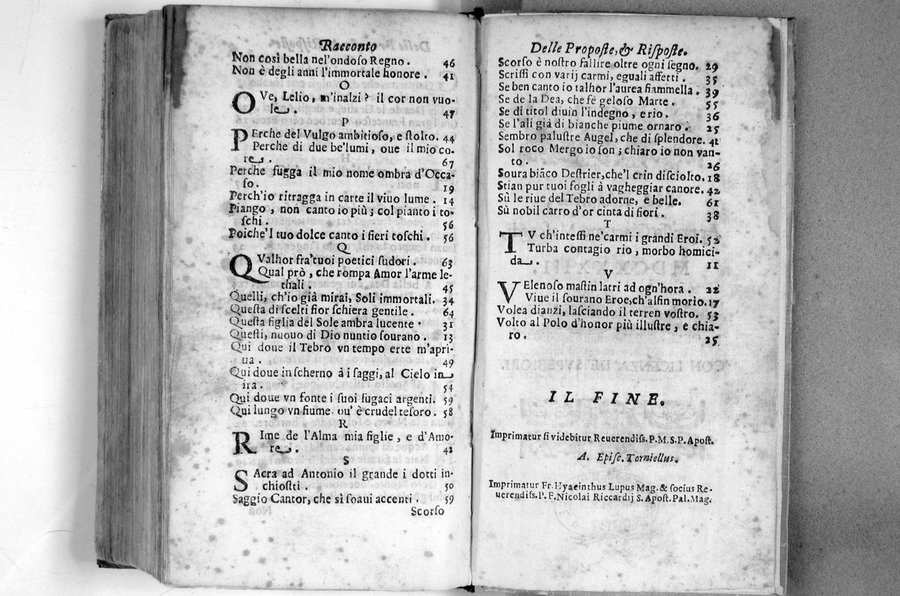 Racconto
Non così bella nel'ondoso Regno. 46
Non è degli anni l'immortale honore. 41
O
OVe, Lelio, m'inalzi? il cor non vuo-
le. 47
P
PErche del Vulgo ambitioso, e stolto. 44
Perche di due be'lumi, oue il mio co-
re. 67
Perche fugga il mio nome ombra d'Occa-
so. 19
Perch'io ritragga in carte il viuo lume. 14
Piango, non canto io più; col pianto i to-
schi. 56
Poiche'l tuo dolce canto i fieri toschi. 56
Q
QValhor fra'tuoi poetici sudori. 63
Qual prò, che rompa Amor l'arme le-
thali. 45
Quelli, ch'io già mirai, Soli immortali. 34
Questa di scelti fior schiera gentile. 64
Questa figlia del Sole ambra lucente. 31
Questi, nuouo di Dio nuntio sourano. 13
Qui doue il Tebro vn tempo erte m'apri-
ua. 49
Qui doue in scherno à i saggi, al Cielo in
ira. 54
Qui doue vn fonte i suoi fugaci argenti. 59
Qui lungo vn fiume, ou' è crudel tesoro. 58
R
RIme de l'Alma mia figlie, e d'Amo-
re. 42
S
SAcra ad Antonio il grande i dotti in-
chiostri. 50
Saggio Cantor, che sì soaui accenti. 59
Scorso
Delle Proposte, & Risposte.
Scorso è nostro fallire oltre ogni segno. 29
Scrissi con varij carmi, eguali affetti. 35
Se ben canto io talhor l'aurea fiammella. 39
Se de la Dea, che fè geloso Marte. 55
Se di titol diuin l'indegno, e rio. 36
Se l'ali già di bianche piume ornaro. 25
Sembro palustre Augel, che di splendore. 41
Sol roco Mergo io son; chiaro io non van-
to. 26
Soura biãco Destrier, che'l crin disciolto. 18
Stian pur tuoi fogli à vagheggiar canore. 42
Sù le riue del Tebro adorne, e belle. 61
Sù nobil carro d'or cinta di fiori. 38
T
TV ch'intessi ne'carmi i grandi Eroi. 52
Turba contagio rio, morbo homici-
da. 11
V
VElenoso mastin latri ad ogn'hora. 22
Viue il sourano Eroe, ch'alfin morio. 17
Volea dianzi, lasciando il terren vostro. 53
Volto al Polo d'honor più illustre, e chia-
ro. 25
IL FINE.
Imprimatur si videbitur Reuerendiss. P. M. S. P. Apost.
A. Episc. Torniellus.
Imprimatur Fr. Hyacinthus Lupus Mag. & socius Re-
uerendiss. P. F. Nicolai Riccardij S. Apost. Pal. Mag.